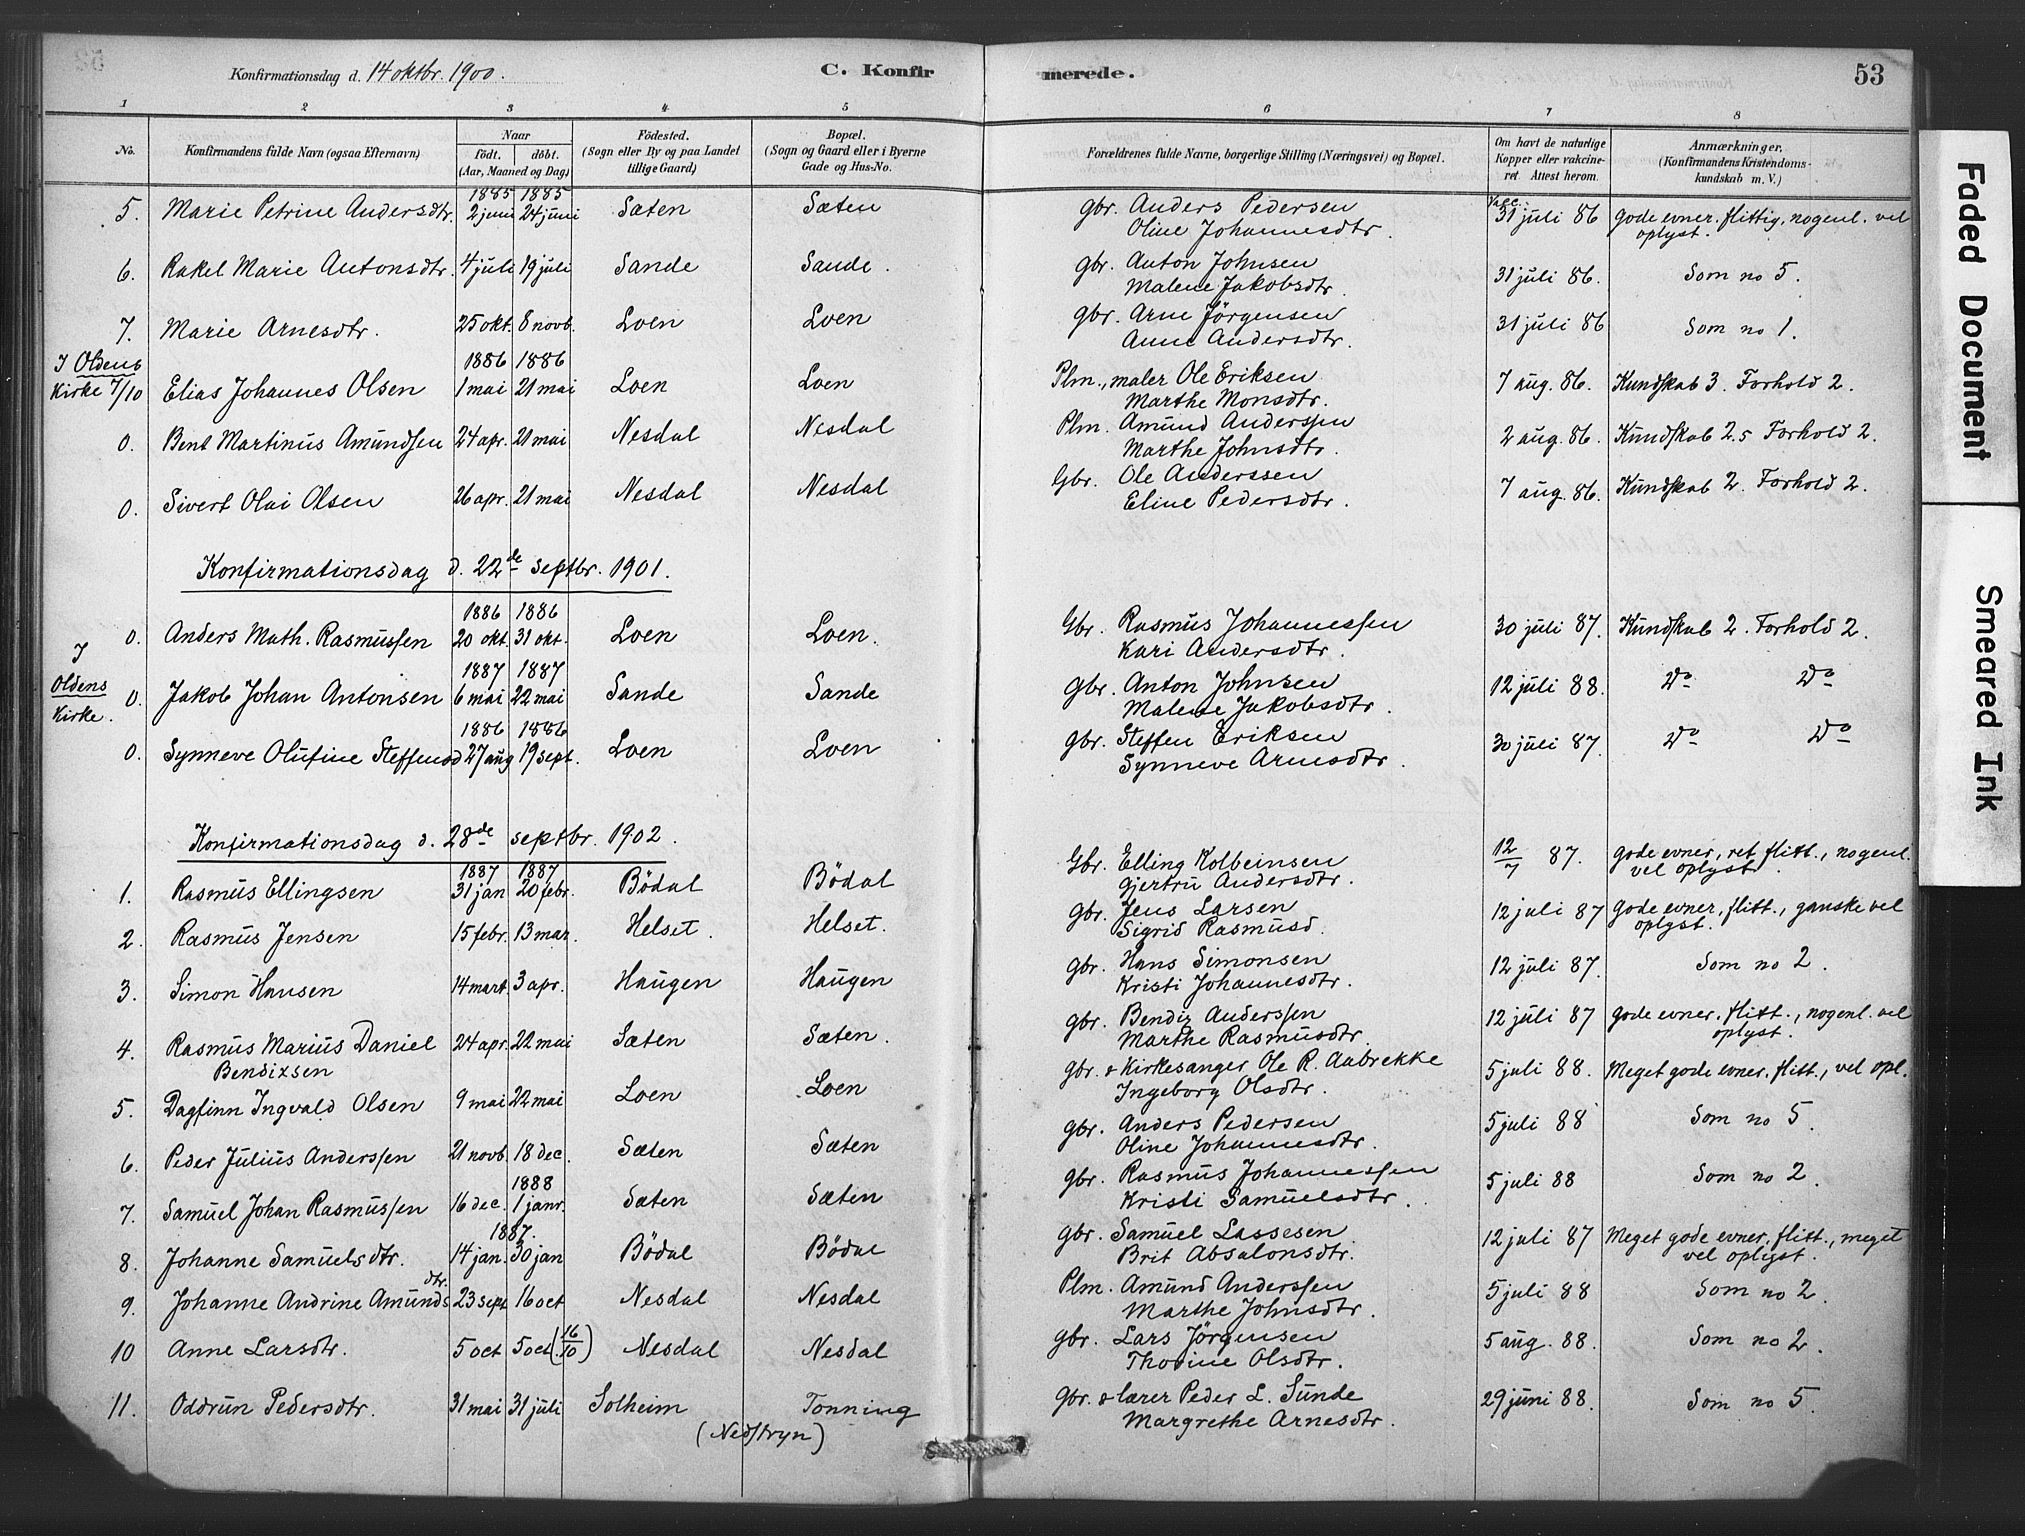 Konfirmationsdag d. 14 oktbr. 1900. C. Konfirmerede. 53
1 2 3 4 5 6 7 8
No. Konfirmandens fulde Navn (ogsaa Efternavn) Naar født. døbt. (Aar, Maaned og Dag) Födested. (Sogn eller By og paa Landet tillige Gaard) Bopæl. (Sogn og Gaard eller i Byerne Gade og Hus-No. Forældrenes fulde Navne, borgerlige Stilling (Næringsvei) og Bopæl. Om havt de naturlige Kopper eller vakcineret Attest herom. Anmærkninger, (Konfirmandens Kristendomskundskab m. V.)
1885 1885 Vacc.
5. Marie Petrine Andersdtr. 2 juni 24 juni Sæten Sæten gbr. Anders Pedersen 31 juli 86 gode evner. flittig, nogenl. vel
Oline Johannesdtr. oplyst.
6. Rakel Marie Antonsdtr. 4 juli 19 juli Sande Sande. gbr. Anton Johnsen 31 juli 86. Som no 5.
Malene Jakobsdtr.
7. Marie Arnesdtr. 25 okt. 8 novb. Loen Loen gbr. Arne Jörgensen 31 juli 86 Som no 1.
Anne Andersdtr.
I Oldens 1886 1886
Kirke 7/10 Elias Johannes Olsen 1 mai 21 mai Loen Loen Plm., maler Ole Eriksen 7 aug. 86. Kundskab 3. Forhold 2.
Marthe Monsdtr.
0. Bent Martinus Amundsen 24 apr. 21 mai Nesdal Nesdal Plm. Amund Anderssen 2 aug. 86. Kundskab 2.5 Forhold 2.
Marthe Johnsdtr.
0. Sivert Olai Olsen 26 apr. 21 mai Nesdal Nesdal Gbr. Ole Anderssen 7 aug. 86. Kundskab 2. Forhold 2.
Eline Pedersdtr.
Konfirmationsdag d. 22de septbr. 1901.
1886 1886
0. Anders Math. Rasmussen 20 okt. 31 okt. Loen Loen. Gbr. Rasmus Johannessen 30 juli 87. Kundskab 2. Forhold 2.
Kari Andersdtr.
I 1887 1887
Oldens 0. Jakob Johan Antonsen 6 mai 22 mai Sande Sande gbr. Anton Johnsen 12 juli 88. Do Do
Kirke. Malene Jakobsdtr.
1886 1886
0. Synneve Olufine Steffensd 27 aug 19 sept. Loen Loen gbr. Steffen Eriksen 30 juli 87. Do Do
Synneve Arnesdtr.
Konfirmationsdag d. 28de septbr. 1902.
1887 1887
1. Rasmus Ellingsen 31 jan 20 febr. Bödal Bödal Gbr. Elling Kolbeinsen 12/7 87. gode evner, ret flitt., nogenl.
Gjertru Andersdtr. vel oplyst.
2. Rasmus Jensen 15 febr. 13 mar. Helset. Helset. gbr. Jens Larsen 12 juli 87 gode evner, flitt., ganske vel
Sigrid Rasmusd. oplyst.
3. Simon Hansen 14 mart. 3 apr. Haugen Haugen gbr. Hans Simonsen 12 juli 87. Som no 2.
Kristi Johannesdtr.
4. Rasmus Marius Daniel 24 apr. 22 mai Sæten Sæten. gbr. Bendix Anderssen 12 juli 87 gode evner, flitt., nogenl. vel
Bendixsen Marthe Rasmusdtr. oplyst.
5. Dagfinn Ingvald Olsen 9 mai 22 mai Loen Loen gbr. & Kirkesanger Ole R. Aabrekke 5 juli 88. Meget gode evner, flitt., vel opl.
Ingeborg Olsdtr.
6. Peder Julius Anderssen 21 novb. 18 dec. Sæten Sæten gbr. Anders Pedersen 5 juli 88 Som no 5.
Oline Johannesdtr.
1888
7. Samuel Johan Rasmussen 16 dec. 1 janr. Sæten Sæten gbr. Rasmus Johannessen 5 juli 88 Som no 2.
Kristi Samuelsdtr.
1887.
8. Johanne Samuelsdtr. 14 jan. 30 jan Bödal Bödal gbr. Samuel Lassesen 12 juli 87 Meget gode evner, flitt., meget
Brit Absalonsdtr. vel oplyst.
9. Johanne Andrine Amundsdtr. 23 sept 16 oct Nesdal Nesdal Plm. Amund Anderssen 5 juli 88 Som no 2.
Marthe Johnsdtr.
10 Anne Larsdtr. 5 oct 5 oct (16/10) Nesdal Nesdal gbr. Lars Jörgensen 5 aug. 88. Som no 2.
Thorine Olsdtr.
11. Oddrun Pedersdtr. 31 mai 31 juli Solheim Tonning Gbr. & lærer Peder L. Sunde 29 juni 88. Som no 5.
(Nedstryn) Margrethe Arnesdtr.
Faded Document
Smeared Ink